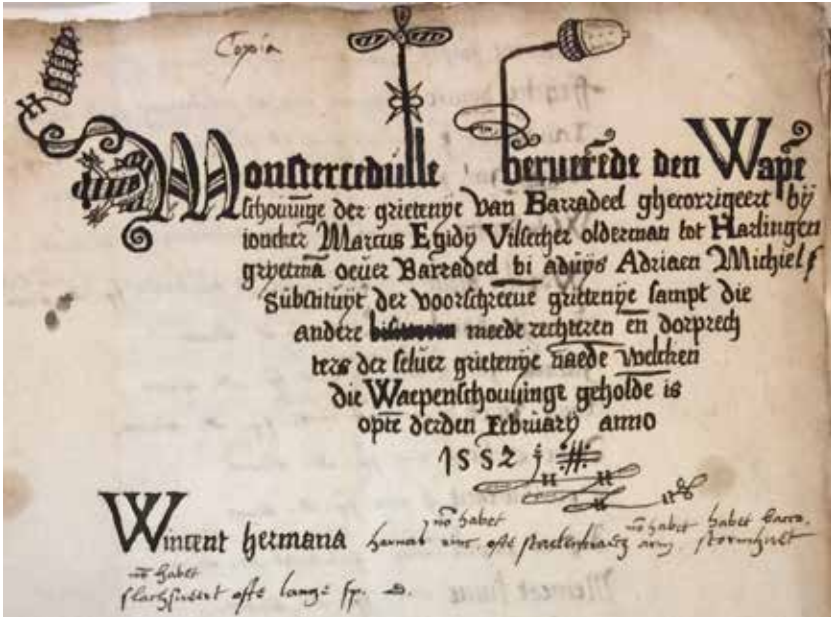 Copia
Monstercedulle beruerēde den Wapē
schouuinge der grietenye van Barradeel ghecorrigeert bij
ioncker Marcus Egidij Vilsecher olderman tot Harlingen
gryetmā oeuer Barradeel bi aduys Adriaen Michiels
Substituyt der voorschreeue grietenye sampt die
andere meede rechteren en̄ dorprech
ters der seluer grietenye naede welcken
die Waepenschouuinge geholde is
optē derden February anno
1552
nō habet nō habet habet
Wincent hermana harnas ofte stormhoet
nō habet
slachsweert ofte lange sp.